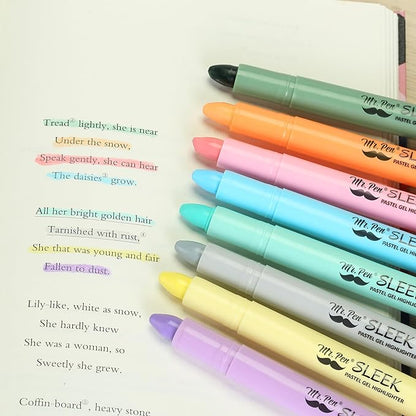 Tread② lightly, she is near
Under the snow,
Speak gently, she can hear
The daisies② grow.
All her bright golden hair
Tarnished with rust,③
She that was young and fair
Fallen to dust.
Lily-like, white as snow,
She hardly knew
She was a woman, so
Sweetly she grew.
Coffin-board③, heavy stone
Mr. Pen® SLEEK
PASTEL GEL HIGHLIGHTER
Mr. Pen® SLEEK
PASTEL GEL HIGHLIGHTER
Mr. Pen® SLEEK
PASTEL GEL HIGHLIGHTER
Mr. Pen® SLEEK
PASTEL GEL HIGHLIGHTER
Mr. Pen® SLEEK
PASTEL GEL HIGHLIGHTER
Mr. Pen® SLEEK
PASTEL GEL HIGHLIGHTER
Mr. Pen® SLEEK
PASTEL GEL HIGHLIGHTER
Mr. Pen® SLEEK
PASTEL GEL